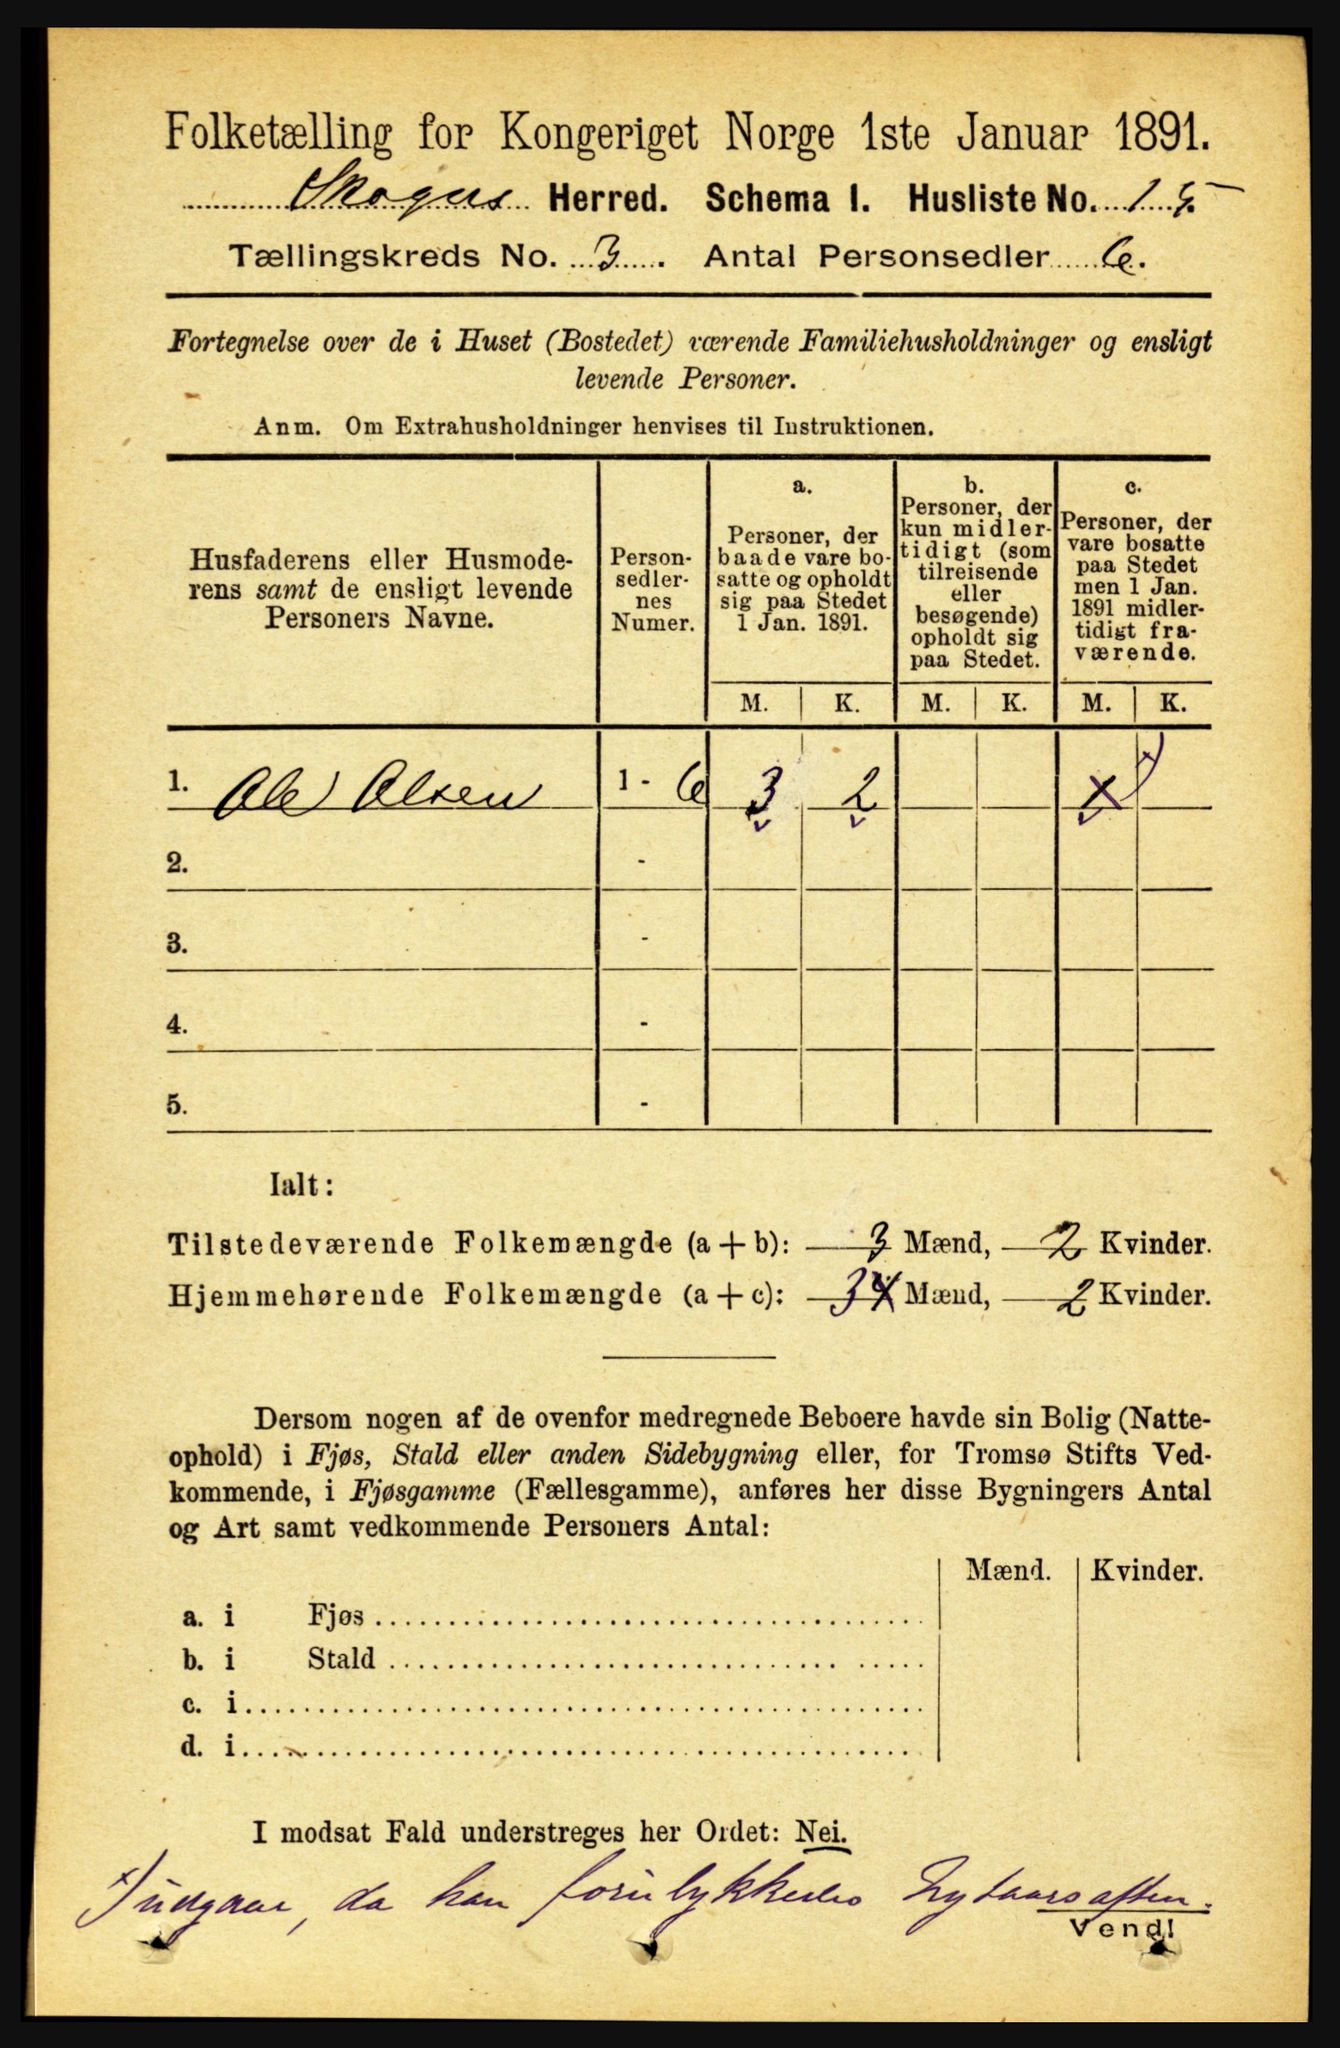 Folketælling for Kongeriget Norge 1ste Januar 1891.
Skogns Herred. Schema I. Husliste No. 15.
Tællingskreds No. 3. Antal Personsedler 6.
Fortegnelse over de i Huset (Bostedet) værende Familiehusholdninger og ensligt
levende Personer.
Anm. Om Extrahusholdninger henvises til Instruktionen.
Husfaderens eller Husmode-
rens samt de ensligt levende
Personers Navne.
Person-
sedler-
nes
Numer.
a.
Personer, der
baade vare bo-
satte og opholdt
sig paa Stedet
1 Jan. 1891.
b.
Personer, der
kun midler-
tidigt (som
tilreisende
eller
besøgende)
opholdt sig
paa Stedet.
c.
Personer, der
vare bosatte
paa Stedet
men 1 Jan.
1891 midler-
tidigt fra-
værende.
M. K. M. K. M. K.
1. Ole Olsen 1 - 6 3 2 x)
2. -
3. -
4. -
5. -
Ialt:
Tilstedeværende Folkemængde (a + b): 3 Mænd, 2 Kvinder.
Hjemmehørende Folkemængde (a + c): 3 4 Mænd, 2 Kvinder.
Dersom nogen af de ovenfor medregnede Beboere havde sin Bolig (Natte-
ophold) i Fjøs, Stald eller anden Sidebygning eller, for Tromsø Stifts Ved-
kommende, i Fjøsgamme (Fællesgamme), anføres her disse Bygningers Antal
og Art samt vedkommende Personers Antal:
Mænd. Kvinder.
a. i Fjøs
b. i Stald
c. i
d. i
I modsat Fald understreges her Ordet: Nei.
x) udgaar, da han forulykkedes Nytaarsaften.
Vend!